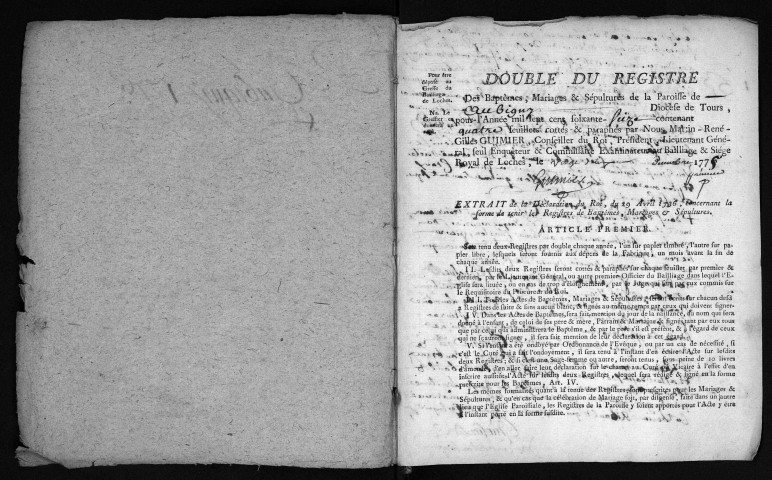 Pour être
déposé au
Greffe du
Bailliage
de Loches.
DOUBLE DU REGISTRE
Des Baptêmes, Mariages & Sépultures de la Paroisse de
Aubigny Diocèse de Tours,
pour l'Année mil sept cent soixante-seize contenant
quatre feuillets cottés & paraphés par Nous Martin-René-
Gilles GUIMIER, Conseiller du Roi, Président, Lieutenant Géné-
ral, seul Enquêteur & Commissaire Examinateur au Bailliage & Siége
Royal de Loches, le 1775
Guimier
EXTRAIT de la Déclaration du Roi, du 29 Avril 1736, concernant la
forme de tenir les Registres de Baptêmes, Mariages & Sépultures.
ARTICLE PREMIER.
Sera tenu deux Registres par double chaque année, l'un sur papier timbré, l'autre sur pa-
pier libre, lesquels seront fournis aux dépens de la Fabrique, un mois avant la fin de
chaque année.
II. Lesdits deux Registres seront cottés & paraphés sur chaque feuillet par premier &
dernier, par le Lieutenant Général, ou autre premier Officier du Bailliage dans lequel l'E-
glise sera située, ou en cas de trop d'éloignement, par le Juge qui sera par eux commis sur
le Requisitoire du Procureur du Roi.
III. Tous les Actes de Baptêmes, Mariages & Sépultures seront écrits sur chacun desd.
Registres de suite & sans aucun blanc, & signés au même temps par ceux qui doivent signer.
IV. Dans les Actes de Baptêmes, sera fait mention du jour de la naissance, du nom qui sera
donné à l'enfant, de celui de ses pere & mere, Parrain & Marraine, & signés tant par eux tous
que par celui qui administrera le Baptême, & par le pere s'il est présent, & à l'égard de ceux
qui ne sçauront signer, il sera fait mention de leur déclaration à cet égard.
V. Si l'enfant a été ondoyé par Ordonnance de l'Evêque, ou par un cas de nécessité, si
c'est le Curé qui a fait l'ondoyement, il sera tenu à l'instant d'en écrire l'Acte sur lesdits
deux Registres; & si c'est une Sage-femme ou autre, seront tenus, sous peine de 10 livres
d'amende, d'en aller faire leur déclaration sur le champ au Curé ou Vicaire à l'effet d'en
inscrire aussitôt l'Acte sur lesdits deux Registres, lequel sera rédigé & signé en la forme
prescrite pour les Baptêmes, Art. IV.
Les mêmes formalités quant à la tenue des Registres, sont prescrites pour les Mariages &
Sépultures; & qu'en cas que la célébration de Mariage soit, par dispense, faite dans un autre
lieu que l'Eglise Paroissiale, les Registres de la Paroisse y soient apportés pour l'Acte y être
à l'instant porté en la forme susdite.